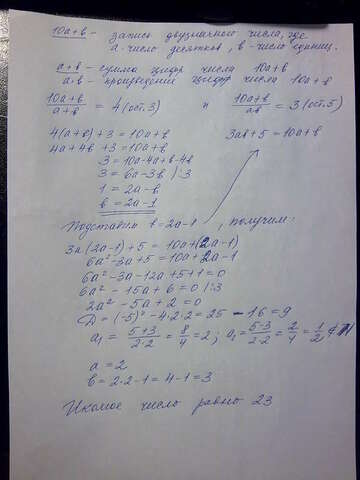 10a+b - запись двузначного числа, где
a - число десятков, b - число единиц.
a+b - сумма цифр числа 10a+b
a·b - произведение цифр числа 10a+b
10a+b/a+b = 4(ост.3) и 10a+b/ab = 3(ост.5)
4(a+b)+3=10a+b 3ab+5=10a+b
4a+4b+3=10a+b
3=10a-4a+b-4b
3=6a-3b |:3
1=2a-b
b=2a-1
Подставим b=2a-1, получим:
3a(2a-1)+5=10a+(2a-1)
6a²-3a+5=10a+2a-1
6a²-3a-12a+5+1=0
6a²-15a+6=0 |:3
2a²-5a+2=0
D=(-5)²-4·2·2=25-16=9
a₁=5+3/2·2=8/4=2; a₂=5-3/2·2=2/4=1/2∉N
a=2
b=2·2-1=4-1=3
Искомое число равно 23